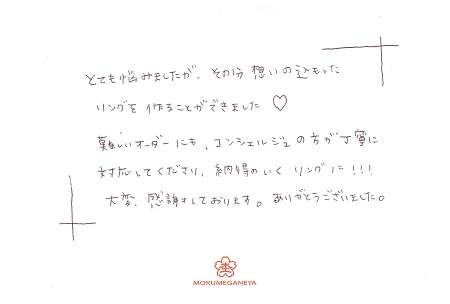 とても悩みましたが、その分 想いの込もった
リングを 作ることができました♡
難しいオーダーにも、コンシェルジュの方が丁寧に
対応してくださり、納得のいく リングに!!!
大変、感謝しております。ありがとうございました。
MOKUMEGANEYA